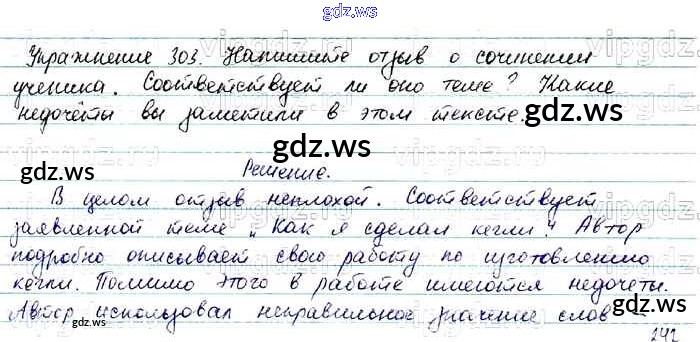 gdz.ws
Упражнение 303. Напишите отзыв о сочинении
ученика. Соответствует ли оно теме? Какие
недочёты вы заметили в этом тексте.
gdz.ws
gdz.ws
Решение.
gdz.ws
В целом отзыв неплохой. Соответствует
заявленной теме „Как я сделал кегли“. Автор
gdz.ws
подробно описывает свою работу по изготовлению
кегли. Помимо этого в работе имеются недочёты.
Автор использовал неправильное значение слов
gdz.ws
gdz.ws
242